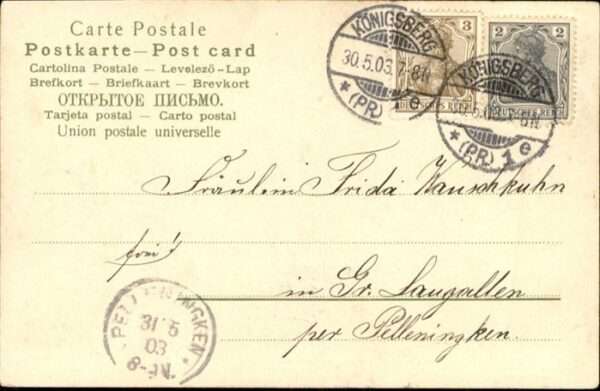 Carte Postale
Postkarte — Post card
Cartolina Postale — Levelező-Lap
Brefkort — Briefkaart — Brevkort
ОТКРЫТОЕ ПИСЬМО.
Tarjeta postal — Carto postal
Union postale universelle
KÖNIGSBERG
30.5.03. 7-8N
* (PR)
e
3
DEUTSCHES REICH
2
DEUTSCHES REICH
KÖNIGSBERG
* (PR.) 1 e
Fräulein Frida Wauschkuhn
frei!
in Gr. Laugallen
per Pelleningken.
31.5
03